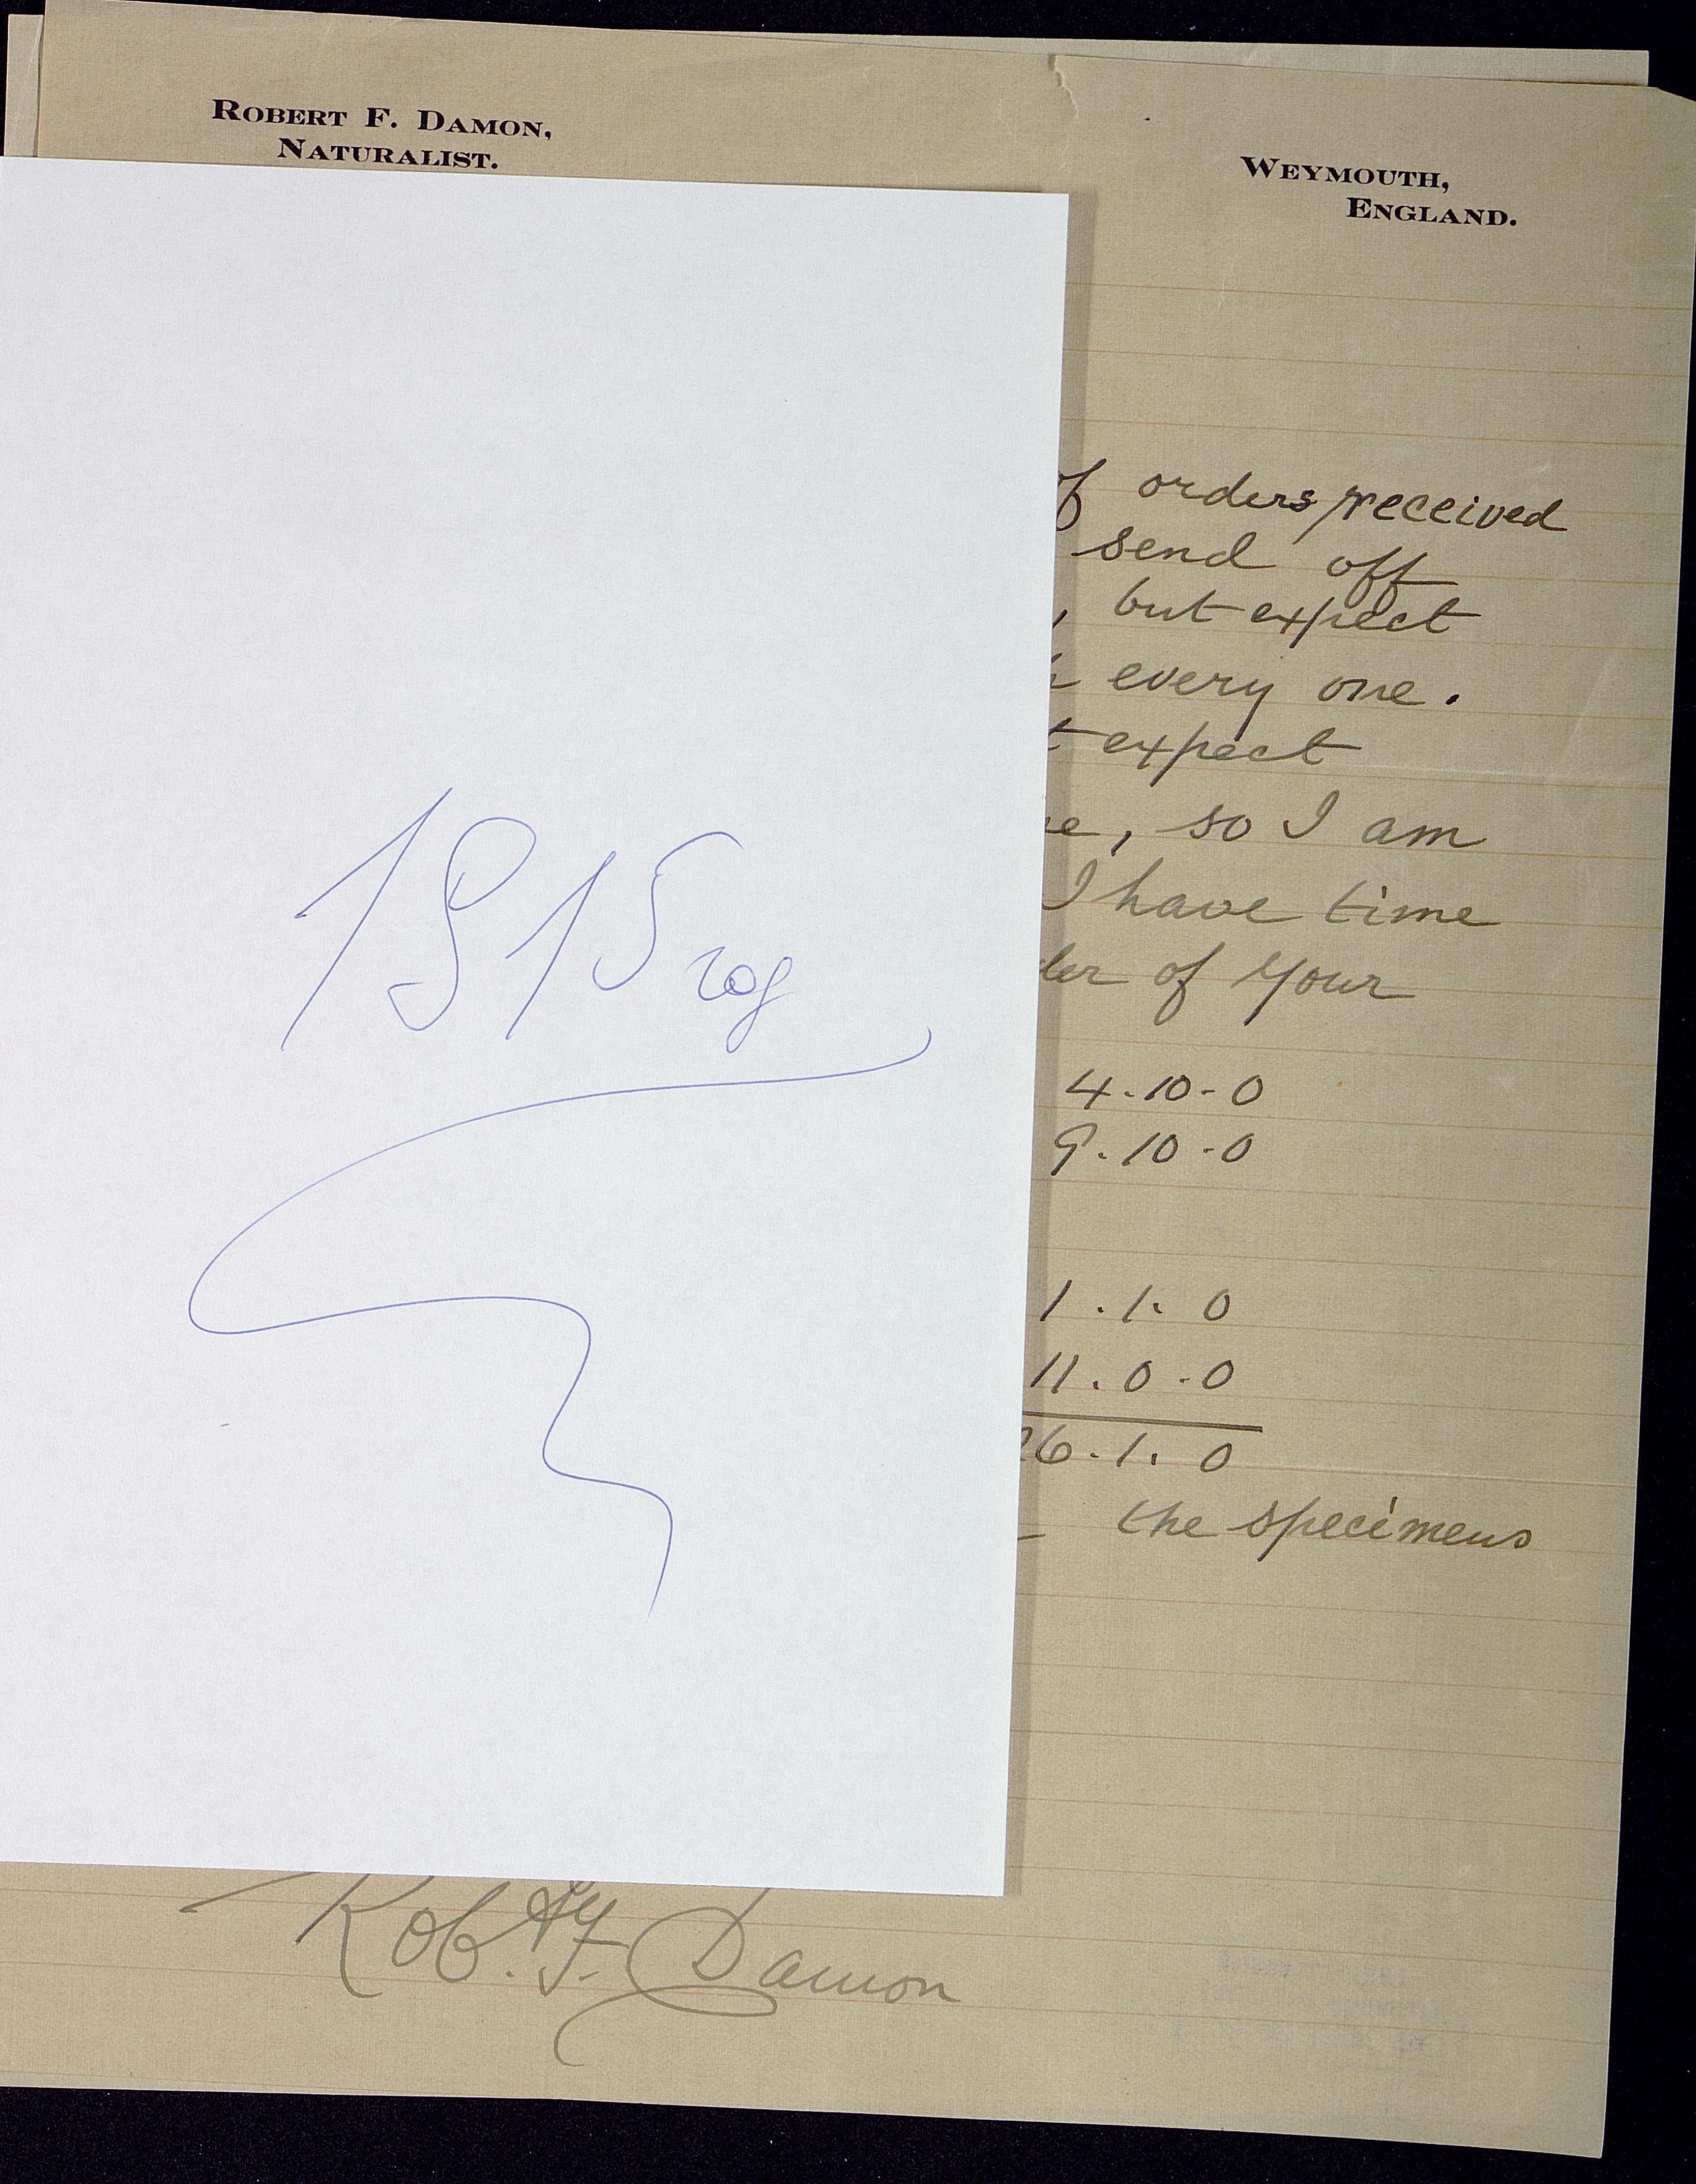 ROBERT F. DAMON,
NATURALIST.
WEYMOUTH,
ENGLAND.
of orders received
send off
, but expect
every one.
expect
, so I am
I have time
of your
4.10-0
9.10-0
1.1.0
11.0-0
26.1.0
the specimens
1915 год
Robt. F. Damon